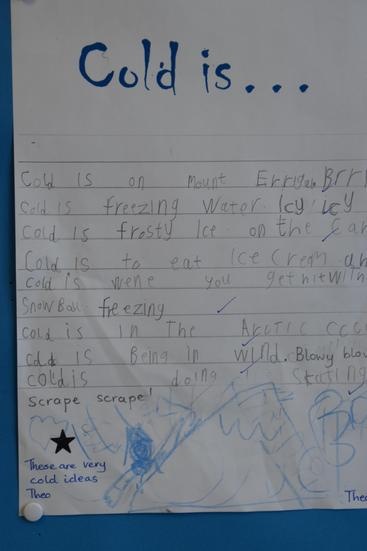 Cold is...
Cold is on Mount Errigab Brrr
Cold is freezing water Icy Icy
Cold is frosty Ice on the Car
Cold is to eat Ice Cream
Cold is wene you get hit With
SnowBall freezing
Cold is in The Arctic
Cold is Being in wind. Blowy blow
cold is doing Skating
Scrape scrape!
These are very
cold ideas
Theo
Theo